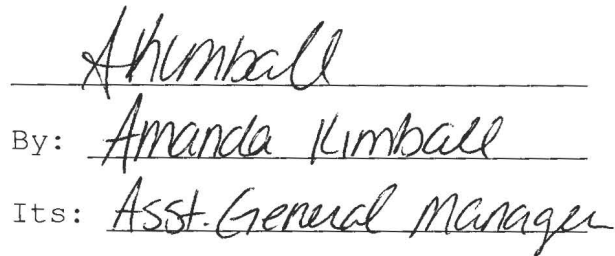 AKimball
By: Amanda Kimball
Its: Asst. General Manager